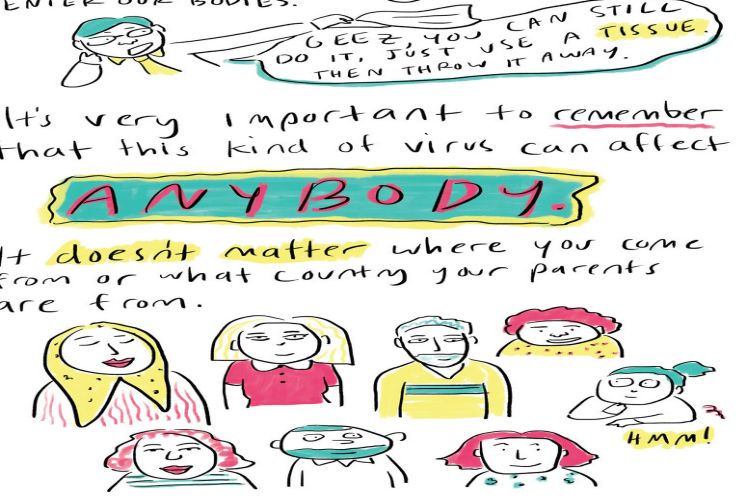 ENTER OUR BODIES.
GEEZ, YOU CAN STILL
DO IT, JUST USE A TISSUE.
THEN THROW IT AWAY.
It's very important to remember
that this kind of virus can affect
ANYBODY.
It doesn't matter where you come
from or what country your parents
are from.
HMM!